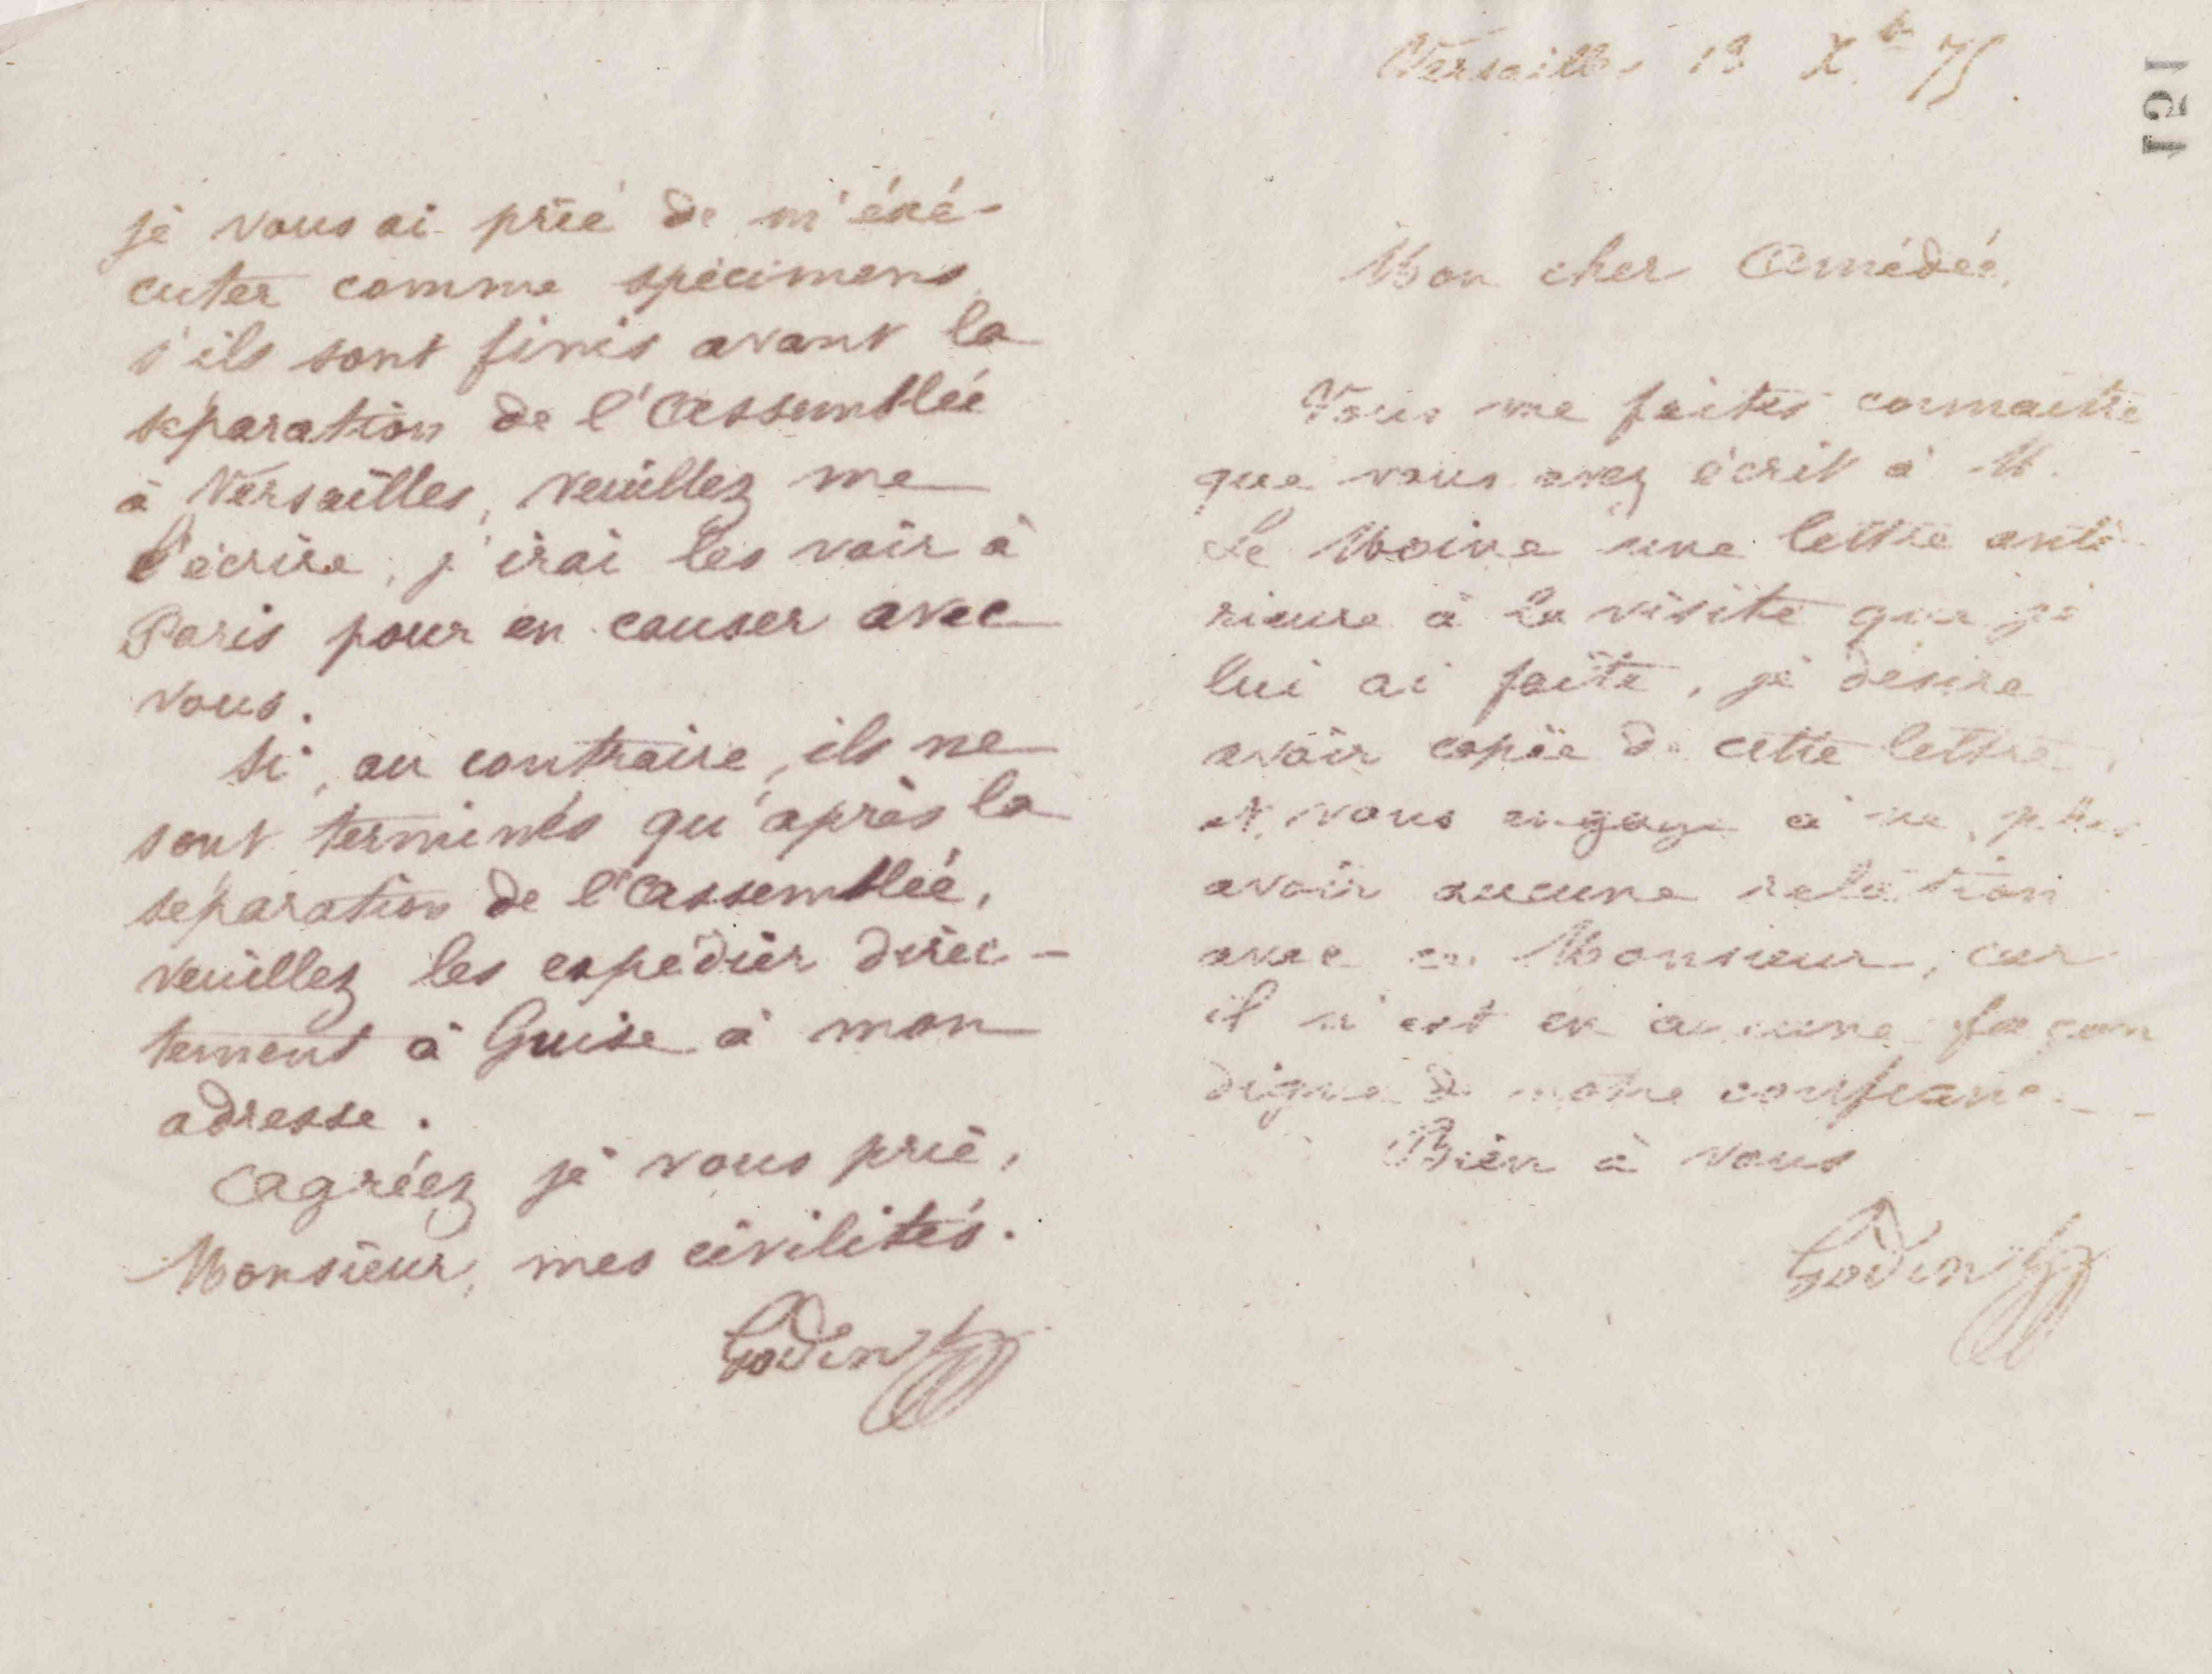 je vous ai prié de m'éxé-
cuter comme spécimens
s'ils sont finis avant la
séparation de l'Assemblée
à Versailles, veuillez me
l'écrire, j'irai les voir à
Paris pour en causer avec
vous.
Si, au contraire, ils ne
sont terminés qu'après la
séparation de l'Assemblée,
veuillez les expédier direc-
tement à Guise à mon
adresse.
Agréez je vous prie,
Monsieur, mes civilités.
Godin
151
Versailles 13 Xbre 75
Mon cher Amédée,
Vous me faites connaitre
que vous avez écrit à M.
Le Moine une lettre anté-
rieure à la visite que je
lui ai faite, je désire
avoir copie de cette lettre,
et vous engage à ne plus
avoir aucune relation
avec ce Monsieur, car
il n'est en aucune façon
digne de notre confiance.
Bien à vous
Godin